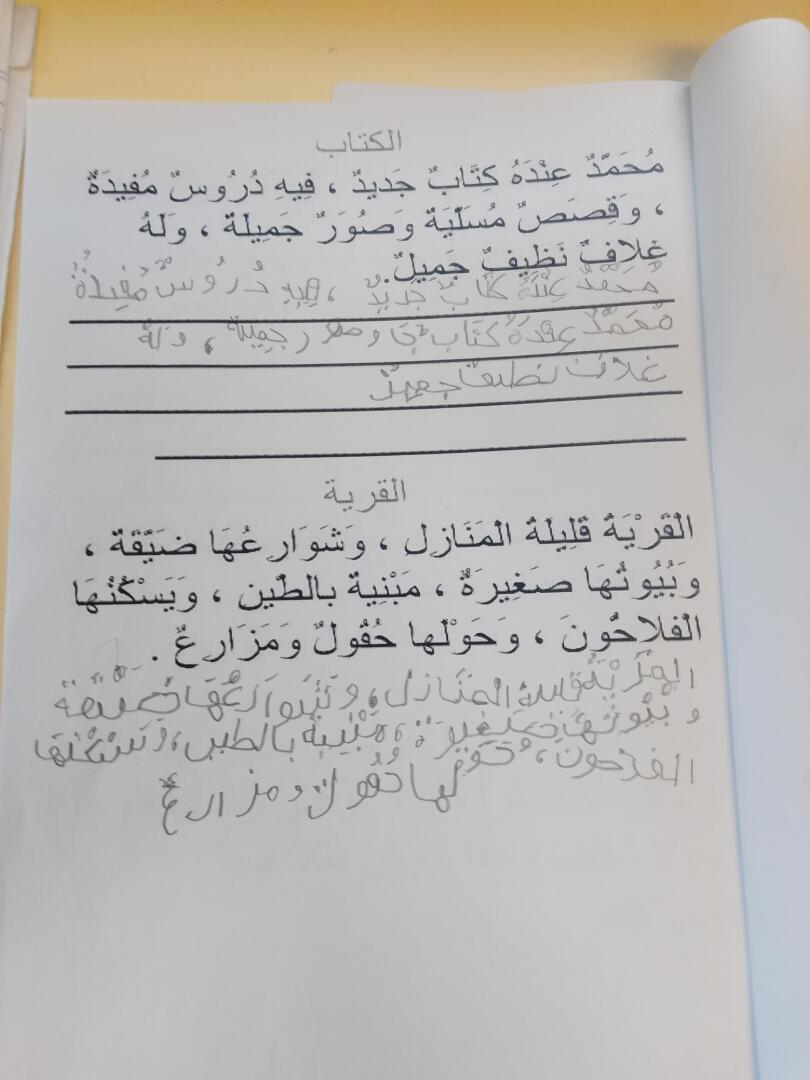 الكتاب
مُحَمَّدٌ عِنْدَهُ كِتَابٌ جَديدٌ ، فِيهِ دُرُوسٌ مُفِيدَةٌ
، وَقِصَصٌ مُسَلّيَةٌ وَصُوَرٌ جَمِيلَة ، وَلَهُ
غِلافٌ نَظِيفٌ جَمِيلٌ.
مُحَمَّدٌ عِنْدَهُ كتَابٌ جَديدٌ ، فِيهِ دُرُوسٌ مُفِيدَةٌ
مُحَمَّدٌ عِنْدَهُ كتَاب جميلة ، وله
غلاف نظيف
القرية
الْقَرْيَة قَلِيلَة المَنَازِل ، وَشَوَارِعُهَا ضَيَّقَة ،
وَبُيُوتُهَا صَغِيرَةٌ ، مَبْنِيَة بالطّين ، وَيَسْكُنُهَا
الْفَلاحُّونَ ، وَحَوْلها حُقُولٌ وَمَزَارِعٌ .
القَرْيَةُ المَنَازل ، وَشَوارعُهَا
وبُيُوتُهَا ، مَبْنِيَة بالطين ، وَيَسْكُنُهَا
الفلاحون ، وَحَوْلها حُقُول ومزارع